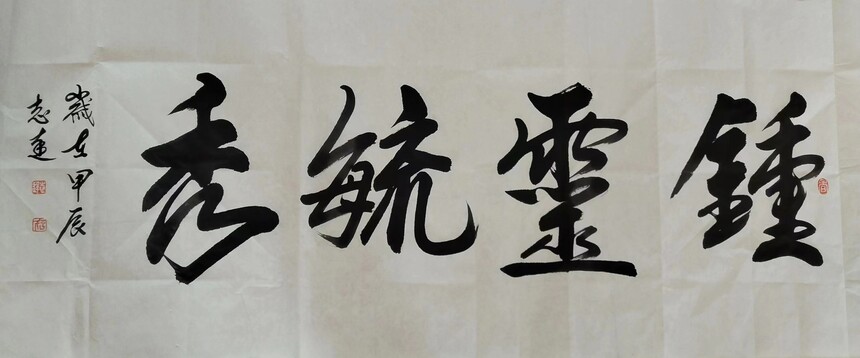 鍾靈毓秀
歲在甲辰
志遠